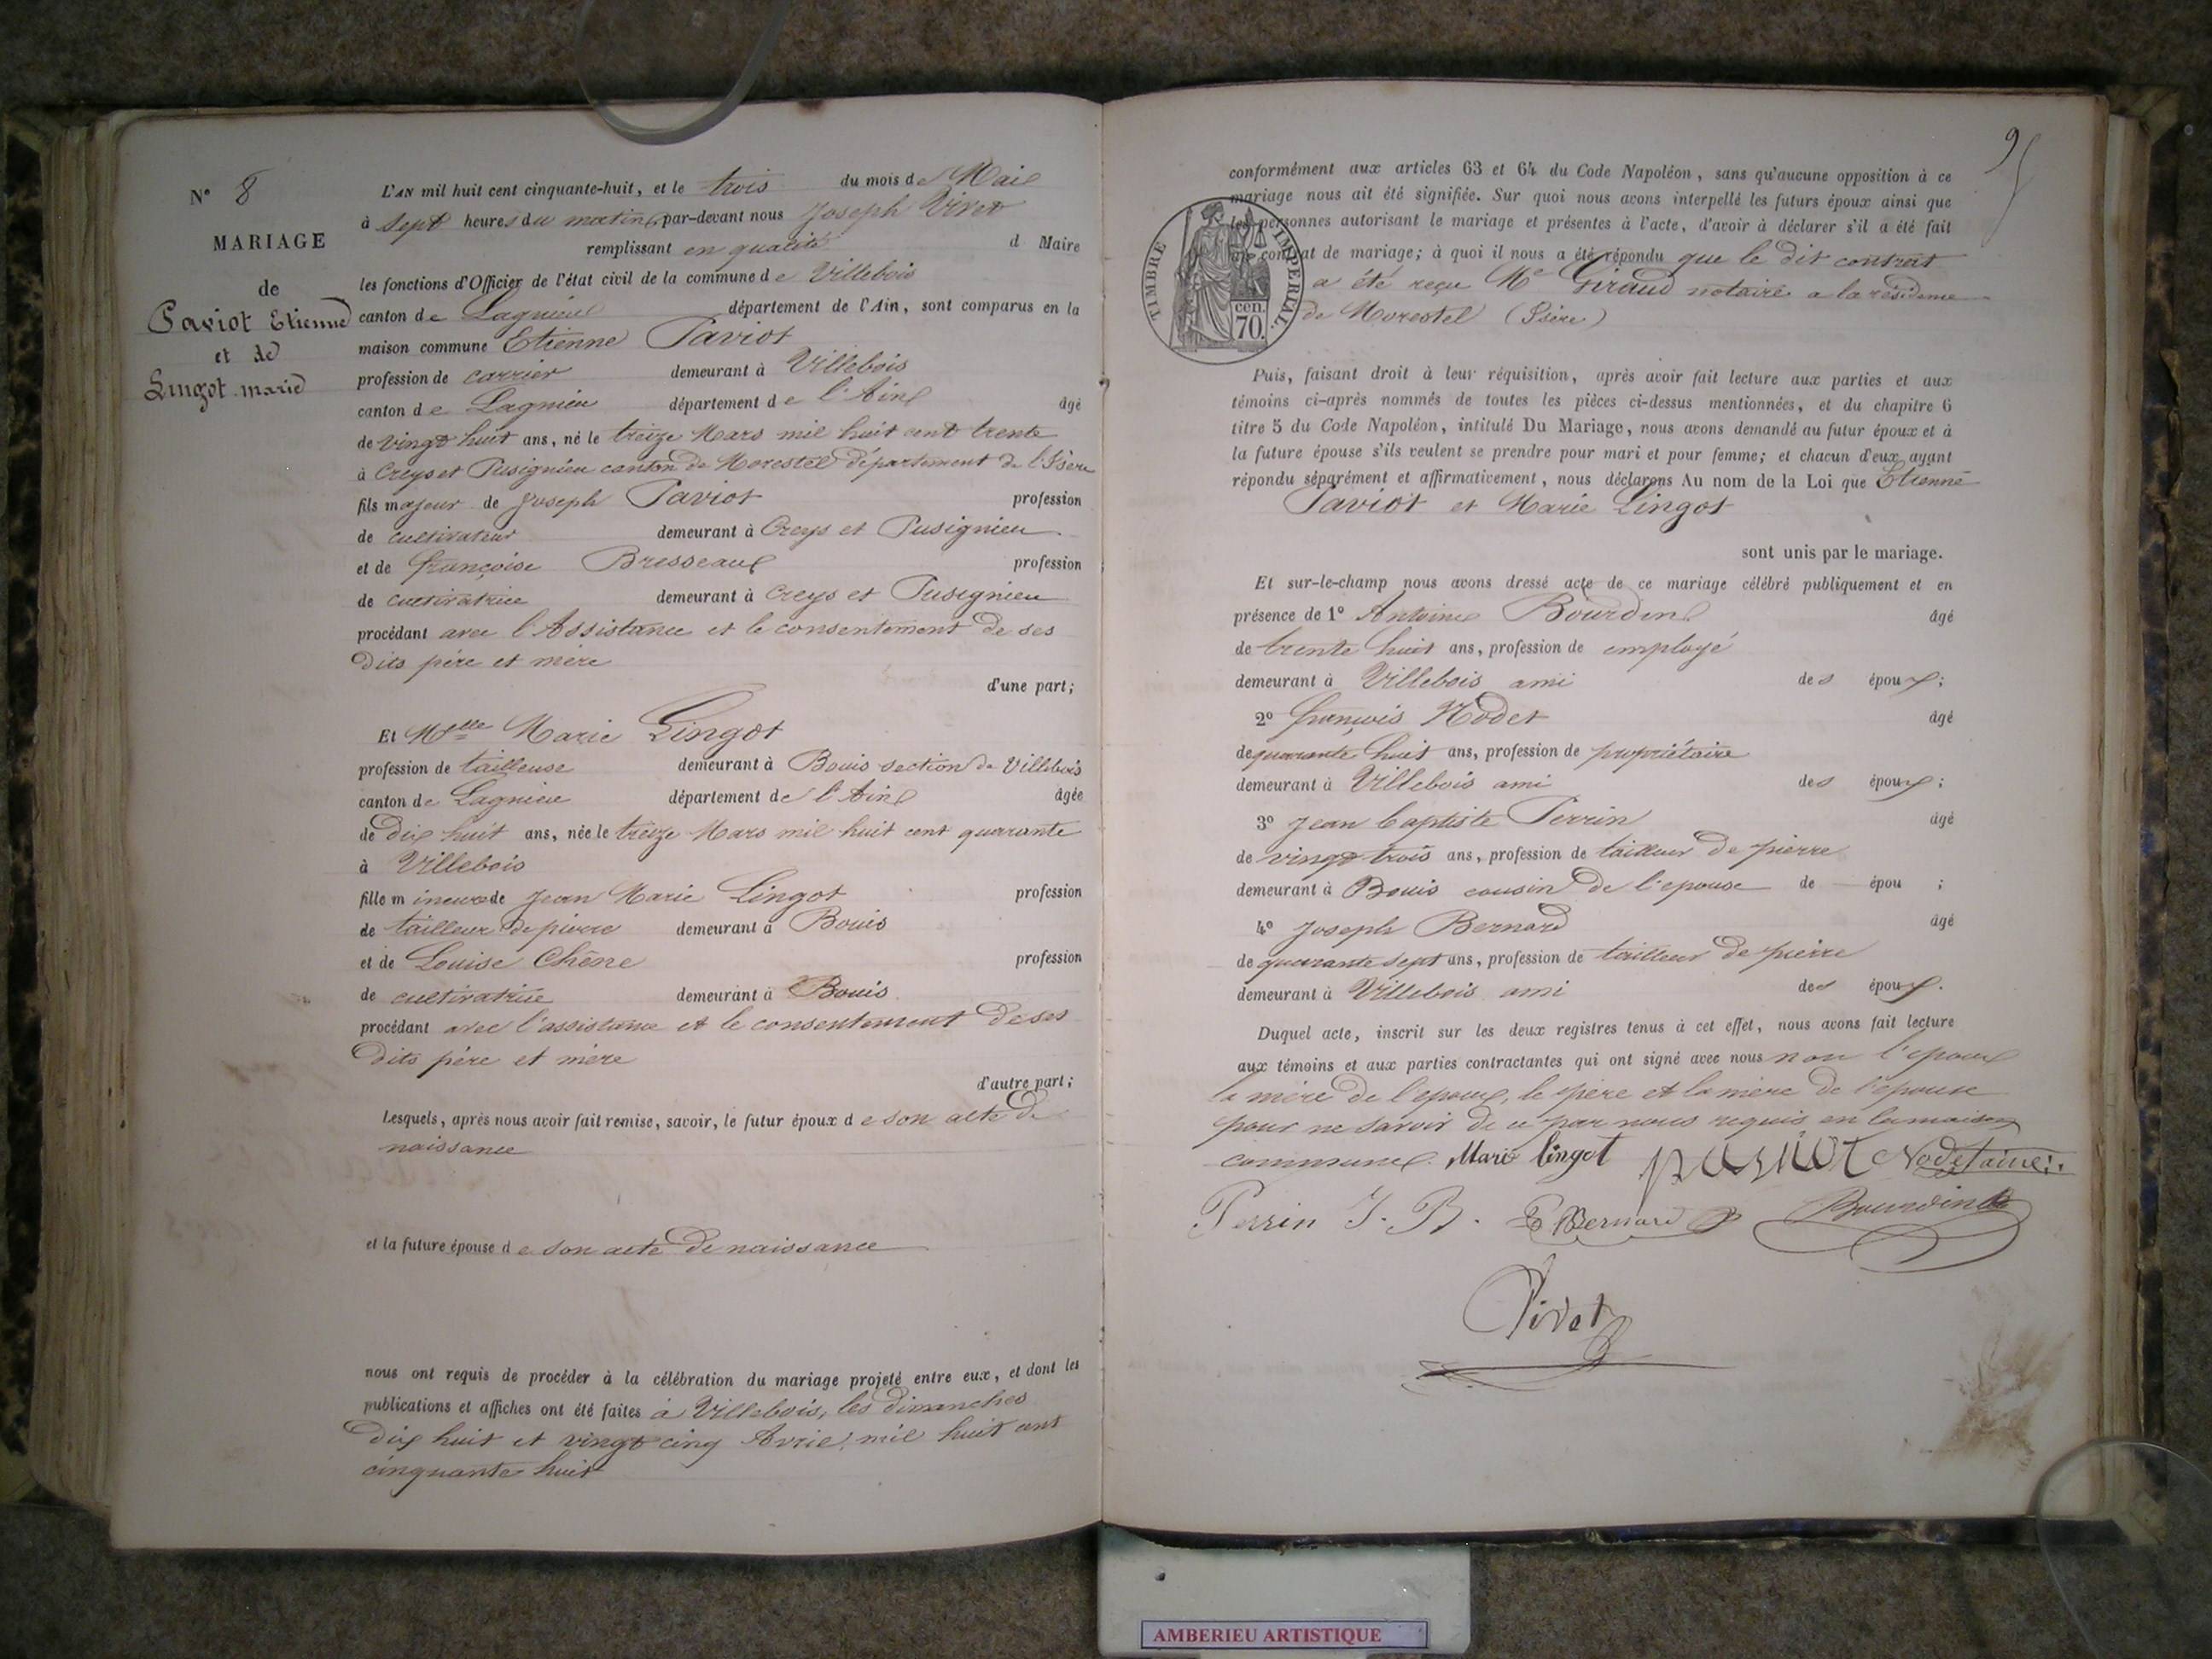 N° 8
MARIAGE
de
Paviot Etienne
et de
Lingot marie
L'AN mil huit cent cinquante-huit, et le trois du mois de Mai
à sept heures du matin, par-devant nous Joseph Vivet
remplissant en qualité d Maire
les fonctions d'Officier de l'état civil de la commune de Villebois
canton de Lagnieu département de l'Ain, sont comparus en la
maison commune Etienne Paviot
profession de carrier demeurant à Villebois
canton de Lagnieu département de l'Ain âgé
de vingt huit ans, né le treize Mars mil huit cent trente
à Creys et Pusignieu canton de Morestel département de l'Isère
fils majeur de Joseph Paviot profession
de cultivateur demeurant à Creys et Pusignieu
et de françoise Bresseau profession
de cultivatrice demeurant à Creys et Pusignieu
procédant avec l'Assistance et le consentement de ses
dits père et mère
d'une part;
Et Mlle Marie Lingot
profession de tailleuse demeurant à Bouis section de Villebois
canton de Lagnieu département de l'Ain âgée
de dix huit ans, née le treize Mars mil huit cent quarante
à Villebois
fille mineure de Jean Marie Lingot profession
de tailleur de pierre demeurant à Bouis
et de Louise Chêne profession
de cultivatrice demeurant à Bouis
procédant avec l'assistance et le consentement de ses
dits père et mère
d'autre part;
Lesquels, après nous avoir fait remise, savoir, le futur époux de son acte de
naissance
et la future épouse de son acte de naissance
nous ont requis de procéder à la célébration du mariage projeté entre eux, et dont les
publications et affiches ont été faites à Villebois, les dimanches
dix huit et vingt cinq Avril mil huit cent
cinquante huit
conformément aux articles 63 et 64 du Code Napoléon, sans qu'aucune opposition à ce
mariage nous ait été signifiée. Sur quoi nous avons interpellé les futurs époux ainsi que
les personnes autorisant le mariage et présentes à l'acte, d'avoir à déclarer s'il a été fait
un contrat de mariage; à quoi il nous a été répondu que le dit contrat
a été reçu Me Giraud notaire a la résidence
de Morestel (Isère)
TIMBRE IMPERIAL.
cen.
70.
Puis, faisant droit à leur réquisition, après avoir fait lecture aux parties et aux
témoins ci-après nommés de toutes les pièces ci-dessus mentionnées, et du chapitre 6
titre 5 du Code Napoléon, intitulé Du Mariage, nous avons demandé au futur époux et à
la future épouse s'ils veulent se prendre pour mari et pour femme; et chacun d'eux ayant
répondu séparément et affirmativement, nous déclarons Au nom de la Loi que Etienne
Paviot et Marie Lingot
sont unis par le mariage.
Et sur-le-champ nous avons dressé acte de ce mariage célébré publiquement et en
présence de 1° Antoine Bourdin âgé
de trente huit ans, profession de employé
demeurant à Villebois ami des époux;
2° françois Nodet âgé
de quarante huit ans, profession de propriétaire
demeurant à Villebois ami des époux;
3° Jean baptiste Perrin âgé
de vingt trois ans, profession de tailleur de pierre
demeurant à Bouis cousin de l'epouse de épou ;
4° Joseph Bernard âgé
de quarante sept ans, profession de tailleur de pierre
demeurant à Villebois ami des époux.
Duquel acte, inscrit sur les deux registres tenus à cet effet, nous avons fait lecture
aux témoins et aux parties contractantes qui ont signé avec nous non l'epoux
la mère de l'epoux, le père et la mère de l'epouse
pour ne savoir de ce par nous requis en la maison
commune. Marie lingot paviot Nodet
Perrin J. B. Bernard Bourdin
Vivet
AMBERIEU ARTISTIQUE